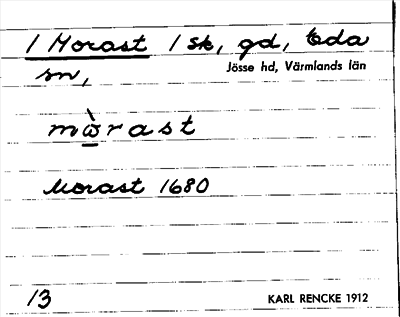 1 Morast 1 sk, gd, Eda
sn,
Jösse hd, Värmlands län
mòrast
Morast 1680
13
KARL RENCKE 1912